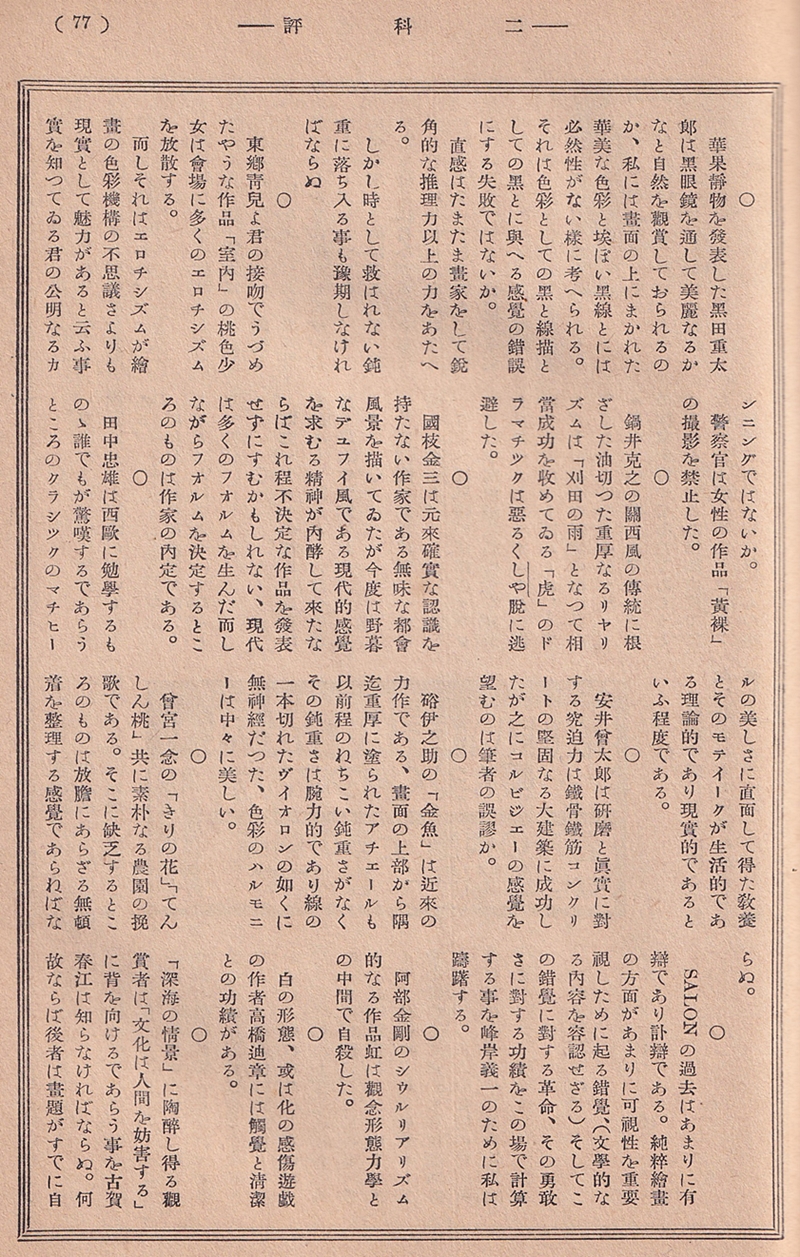 ( 77 )
── 二科評 ──
○
華果靜物を發表した黒田重太
郎は黒眼鏡を通して美麗なるか
なと自然を觀賞しておられるの
か、私には畫面の上にまかれた
華美な色彩と埃ぽい黒線とには
必然性がない樣に考へられる。
それは色彩としての黒と線描と
しての黒とに與へる感覺の錯誤
にする失敗ではないか。
直感はたまたま畫家をして銳
角的な推理力以上の力をあたへ
る。
しかし時として救はれない鈍
重に落ち入る事も豫期しなけれ
ばならぬ
○
東鄕靑兒よ君の接吻でうづめ
たやうな作品「室內」の桃色少
女は會場に多くのエロチシズム
を放散する。
而しそれはエロチシズムが繪
畫の色彩機構の不思議さよりも
現實として魅力があると云ふ事
實を知つてゐる君の公明なるカ
シニングではないか。
警察官は女性の作品「黃裸」
の撮影を禁止した。
○
鍋井克之の關西風の傳統に根
ざした油切つた重厚なるリヤリ
ズムは「刈田の雨」となつて相
當成功を收めてゐる「虎」のド
ラマチツクは惡るくしや脫に逃
避した。
○
國枝金三は元來確實な認識を
持たない作家である無味な都會
風景を描いてゐたが今度は野暮
なデユフイ風である現代的感覺
を求むる精神が內酵して來たな
らばこれ程不決定な作品を發表
せずにすむかもしれない、現代
は多くのフオルムを生んだ而し
ながらフオルムを決定するとこ
ろのものは作家の內定である。
○
田中忠雄は西歐に勉學するも
のゝ誰でもが驚嘆するであらう
ところのクラシツクのマチヒー
ルの美しさに直面して得た敎養
とそのモテイークが生活的であ
る理論的であり現實的であると
いふ程度である。
○
安井曾太郎は硏磨と眞實に對
する究迫力は鐵骨鐵筋コンクリ
ートの堅固なる大建築に成功し
たが之にコルビジエーの感覺を
望むのは筆者の誤謬か。
○
硲伊之助の「金魚」は近來の
力作である、畫面の上部から隅
迄重厚に塗られたアチエールも
以前程のねちこい鈍重さがなく
その鈍重さは腕力的であり線の
一本切れたヴイオロンの如くに
無神經だつた、色彩のハルモニ
ーは中々に美しい。
○
曾宮一念の「きりの花」「てん
しん桃」共に素朴なる農園の挽
歌である。そこに缺乏するとこ
ろのものは放膽にあらざる無頓
着を整理する感覺であらねばな
らぬ。
○
SALONの過去はあまりに有
辯であり計辯である。純粹繪畫
の方面があまりに可視性を重要
視しために起る錯覺、(文學的な
る內容を容認せざる)そしてこ
の錯覺に對する革命、その勇敢
さに對する功績をこの場で計算
する事を峰岸義一のために私は
躊躇する。
○
阿部金剛のシウルリアリズム
的なる作品虹は觀念形態力學と
の中間で自殺した。
○
白の形態、或は化の感傷遊戲
の作者高橋迪章には觸覺と淸潔
との功績がある。
○
「深海の情景」に陶醉し得る觀
賞者は「文化は人間を妨害する」
に背を向けるであらう事を古賀
春江は知らなければならぬ。何
故ならば後者は畫題がすでに自